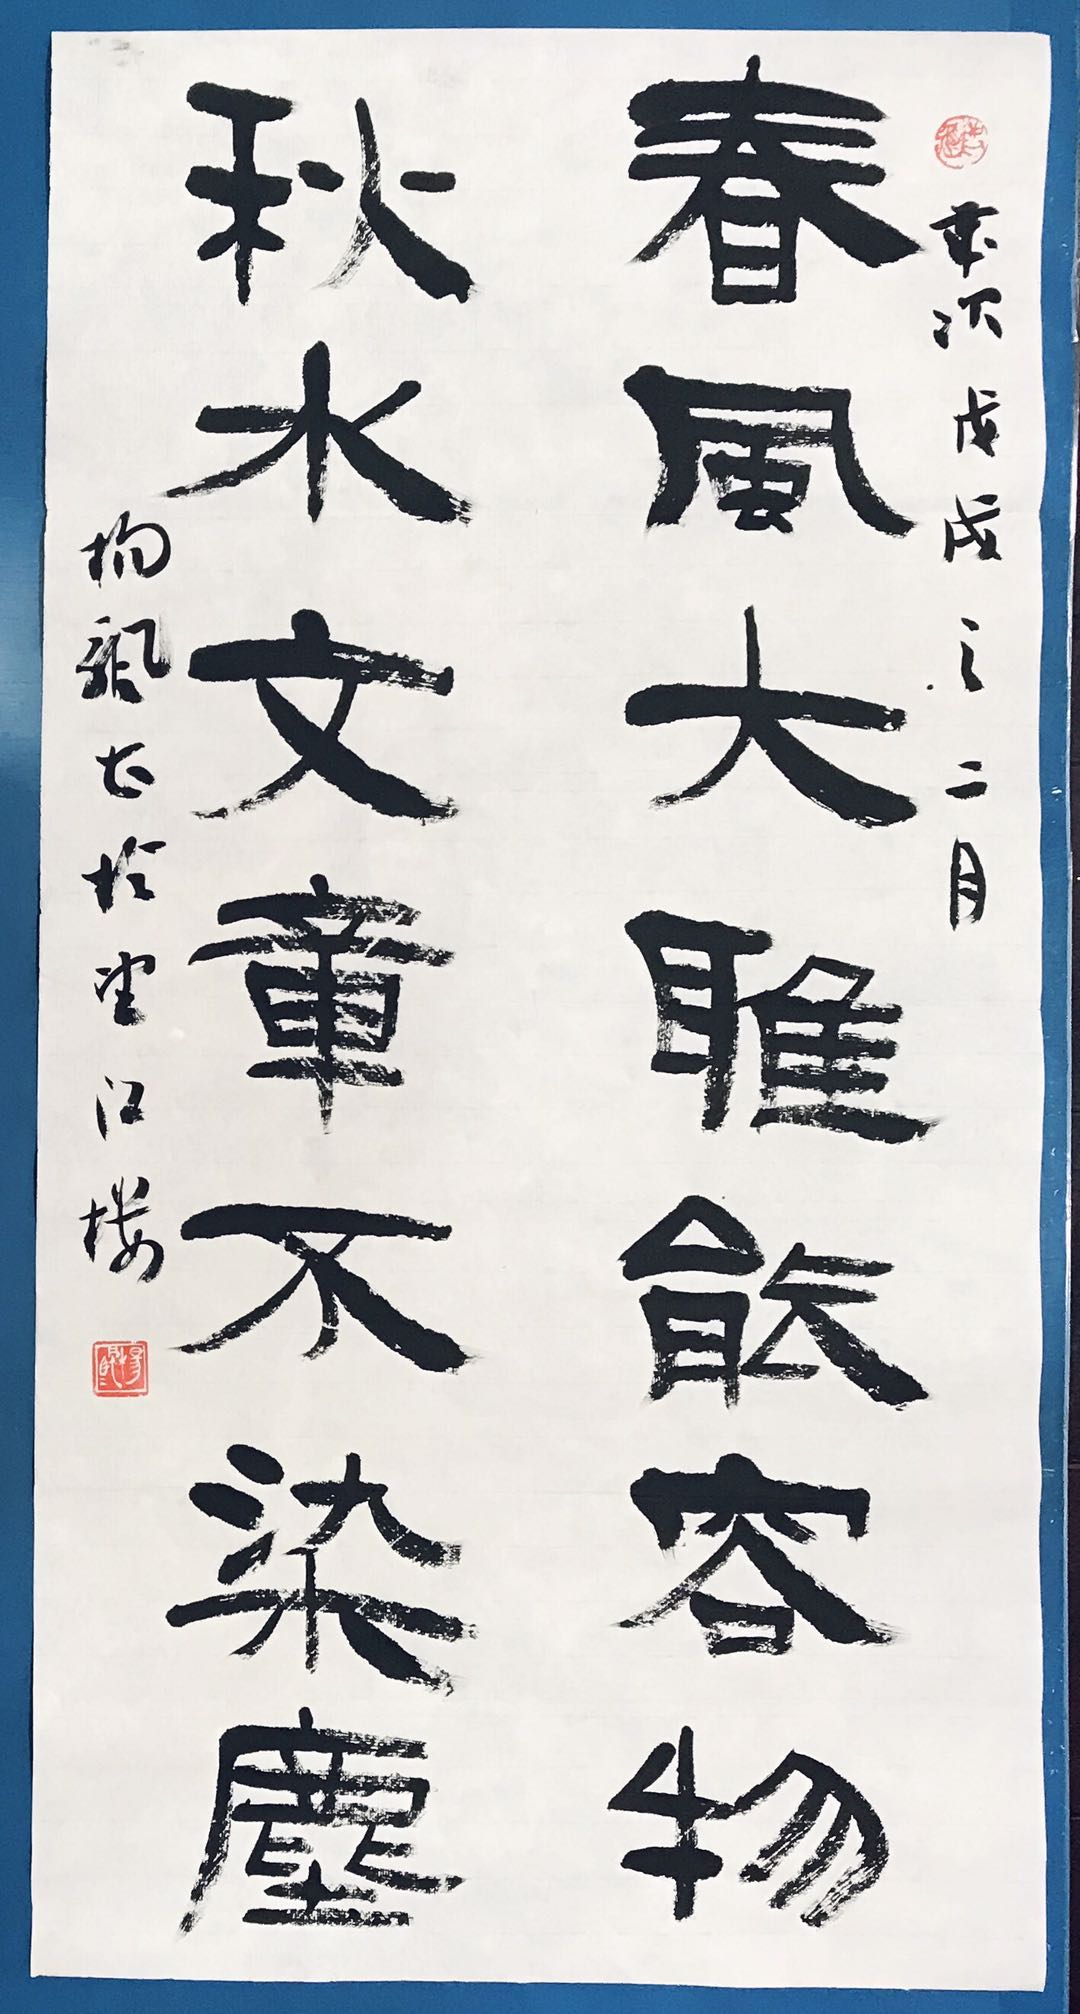 歲次戊戌之二月
春風大雅能容物
秋水文章不染塵
於望江樓